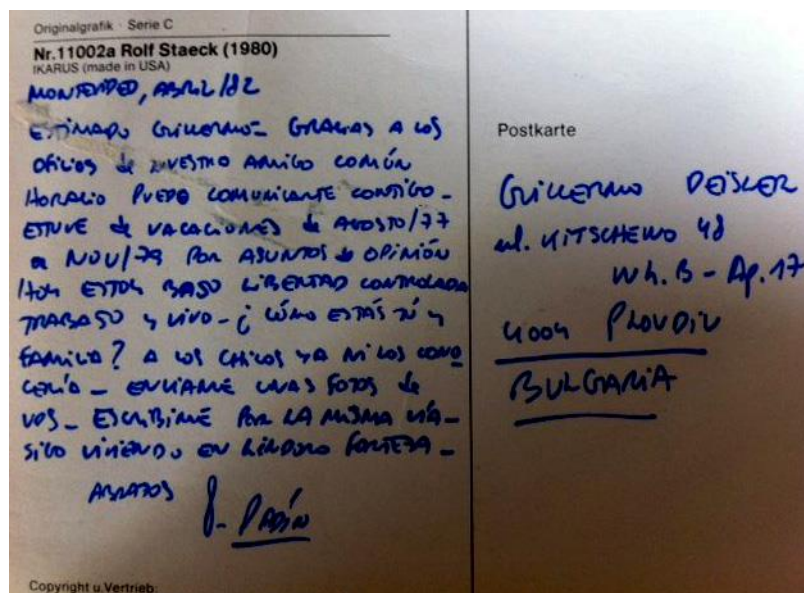 Originalgrafik · Serie C
Nr.11002a Rolf Staeck (1980)
IKARUS (made in USA)
MONTEVIDEO, ABRIL/82
ESTIMADO GUILLERMO- GRACIAS A LOS
OFICIOS de NUESTRO AMIGO COMÚN
HORACIO PUEDO COMUNICARME CONTIGO-
ESTUVE de VACACIONES de AGOSTO/77
a NOV/79 POR ASUNTOS de OPINIÓN
HOY ESTOY BAJO LIBERTAD CONTROLADA
TRABAJO y VIVO- ¿CÓMO ESTÁS TÚ y
FAMILIA? A LOS CHICOS YA NI LOS CONO
CERÍA- ENVIAME UNAS FOTOS de
VOS- ESCRIBIME POR LA MISMA VÍA-
SIGO VIVIENDO EN LINDORO FORTEZA-
ABRAZOS
PADÍN
Copyright u.Vertrieb:
Postkarte
GUILLERMO DEISLER
ul. KITSCHEWO 48
Wh. B - Ap. 17
4004 PLOVDIV
BULGARIA